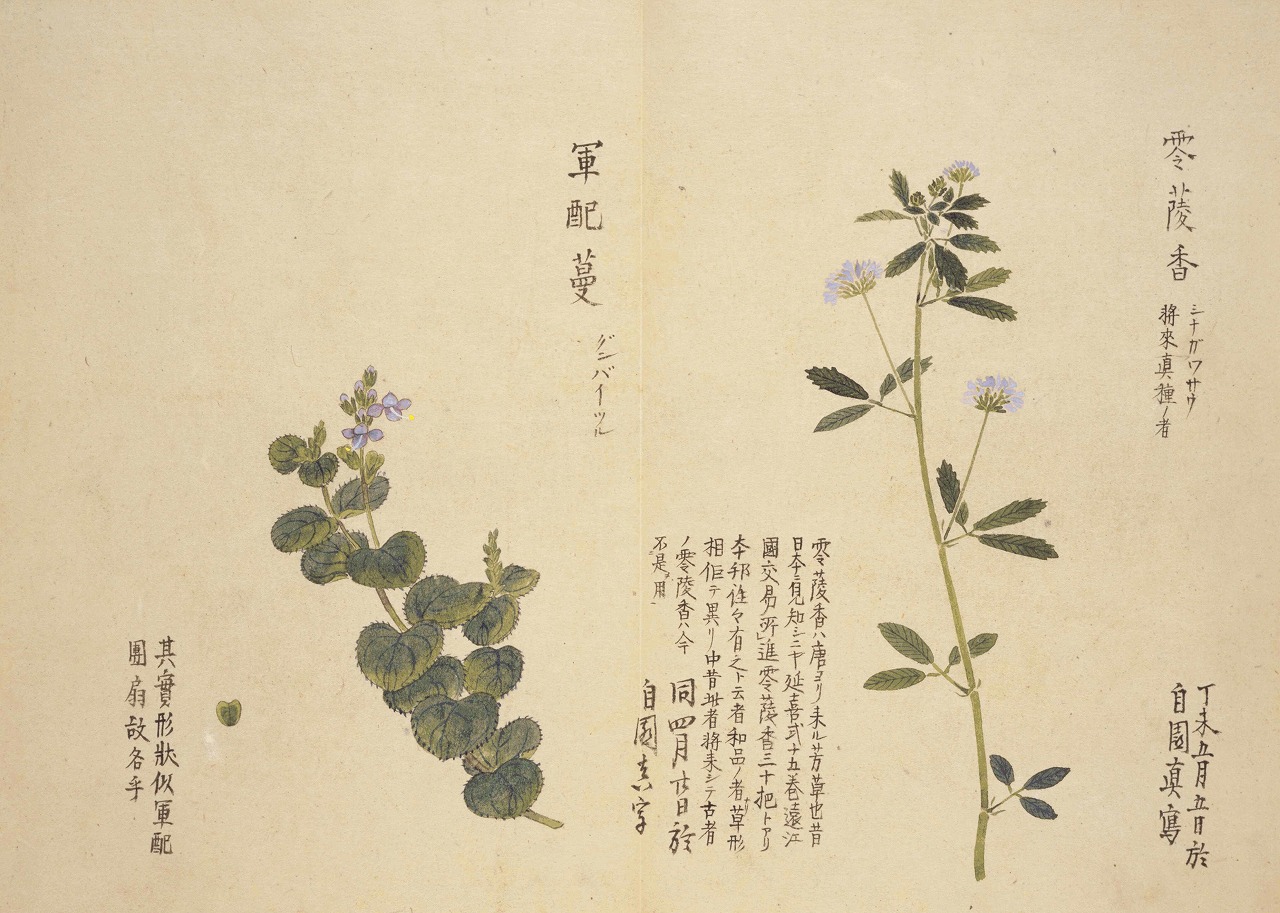 零陵香
シナガワサウ
將來真種ノ者
丁未五月五日於
自園真寫
零陵香ハ唐ヨリ来ル芳草也昔
日本ニ見知シニヤ延喜式十五巻遠江
國交易所進零陵香三十把トアリ
本邦往々有之ト云者和品ノ者ナリ草形
相似テ異リ中昔此者将来シテ古者
ノ零陵香ハ今
不是ヲ用
同四月廿日於
自園真字
軍配蔓
グンバイツル
其實形狀似軍配
團扇故各乎